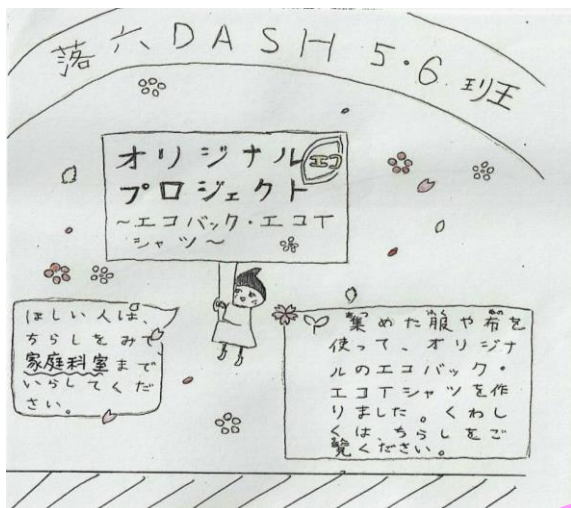 落六DASH 5・6班
オリジナル
エコ
プロジェクト
～エコバック・エコT
シャツ～
ほしい人は、
ちらしをみて
家庭科室まで
いらしてくだ
さい。
集めた服や布を
使って、オリジナ
ルのエコバック・
エコTシャツを作
りました。くわし
くは、ちらしをご
覧ください。